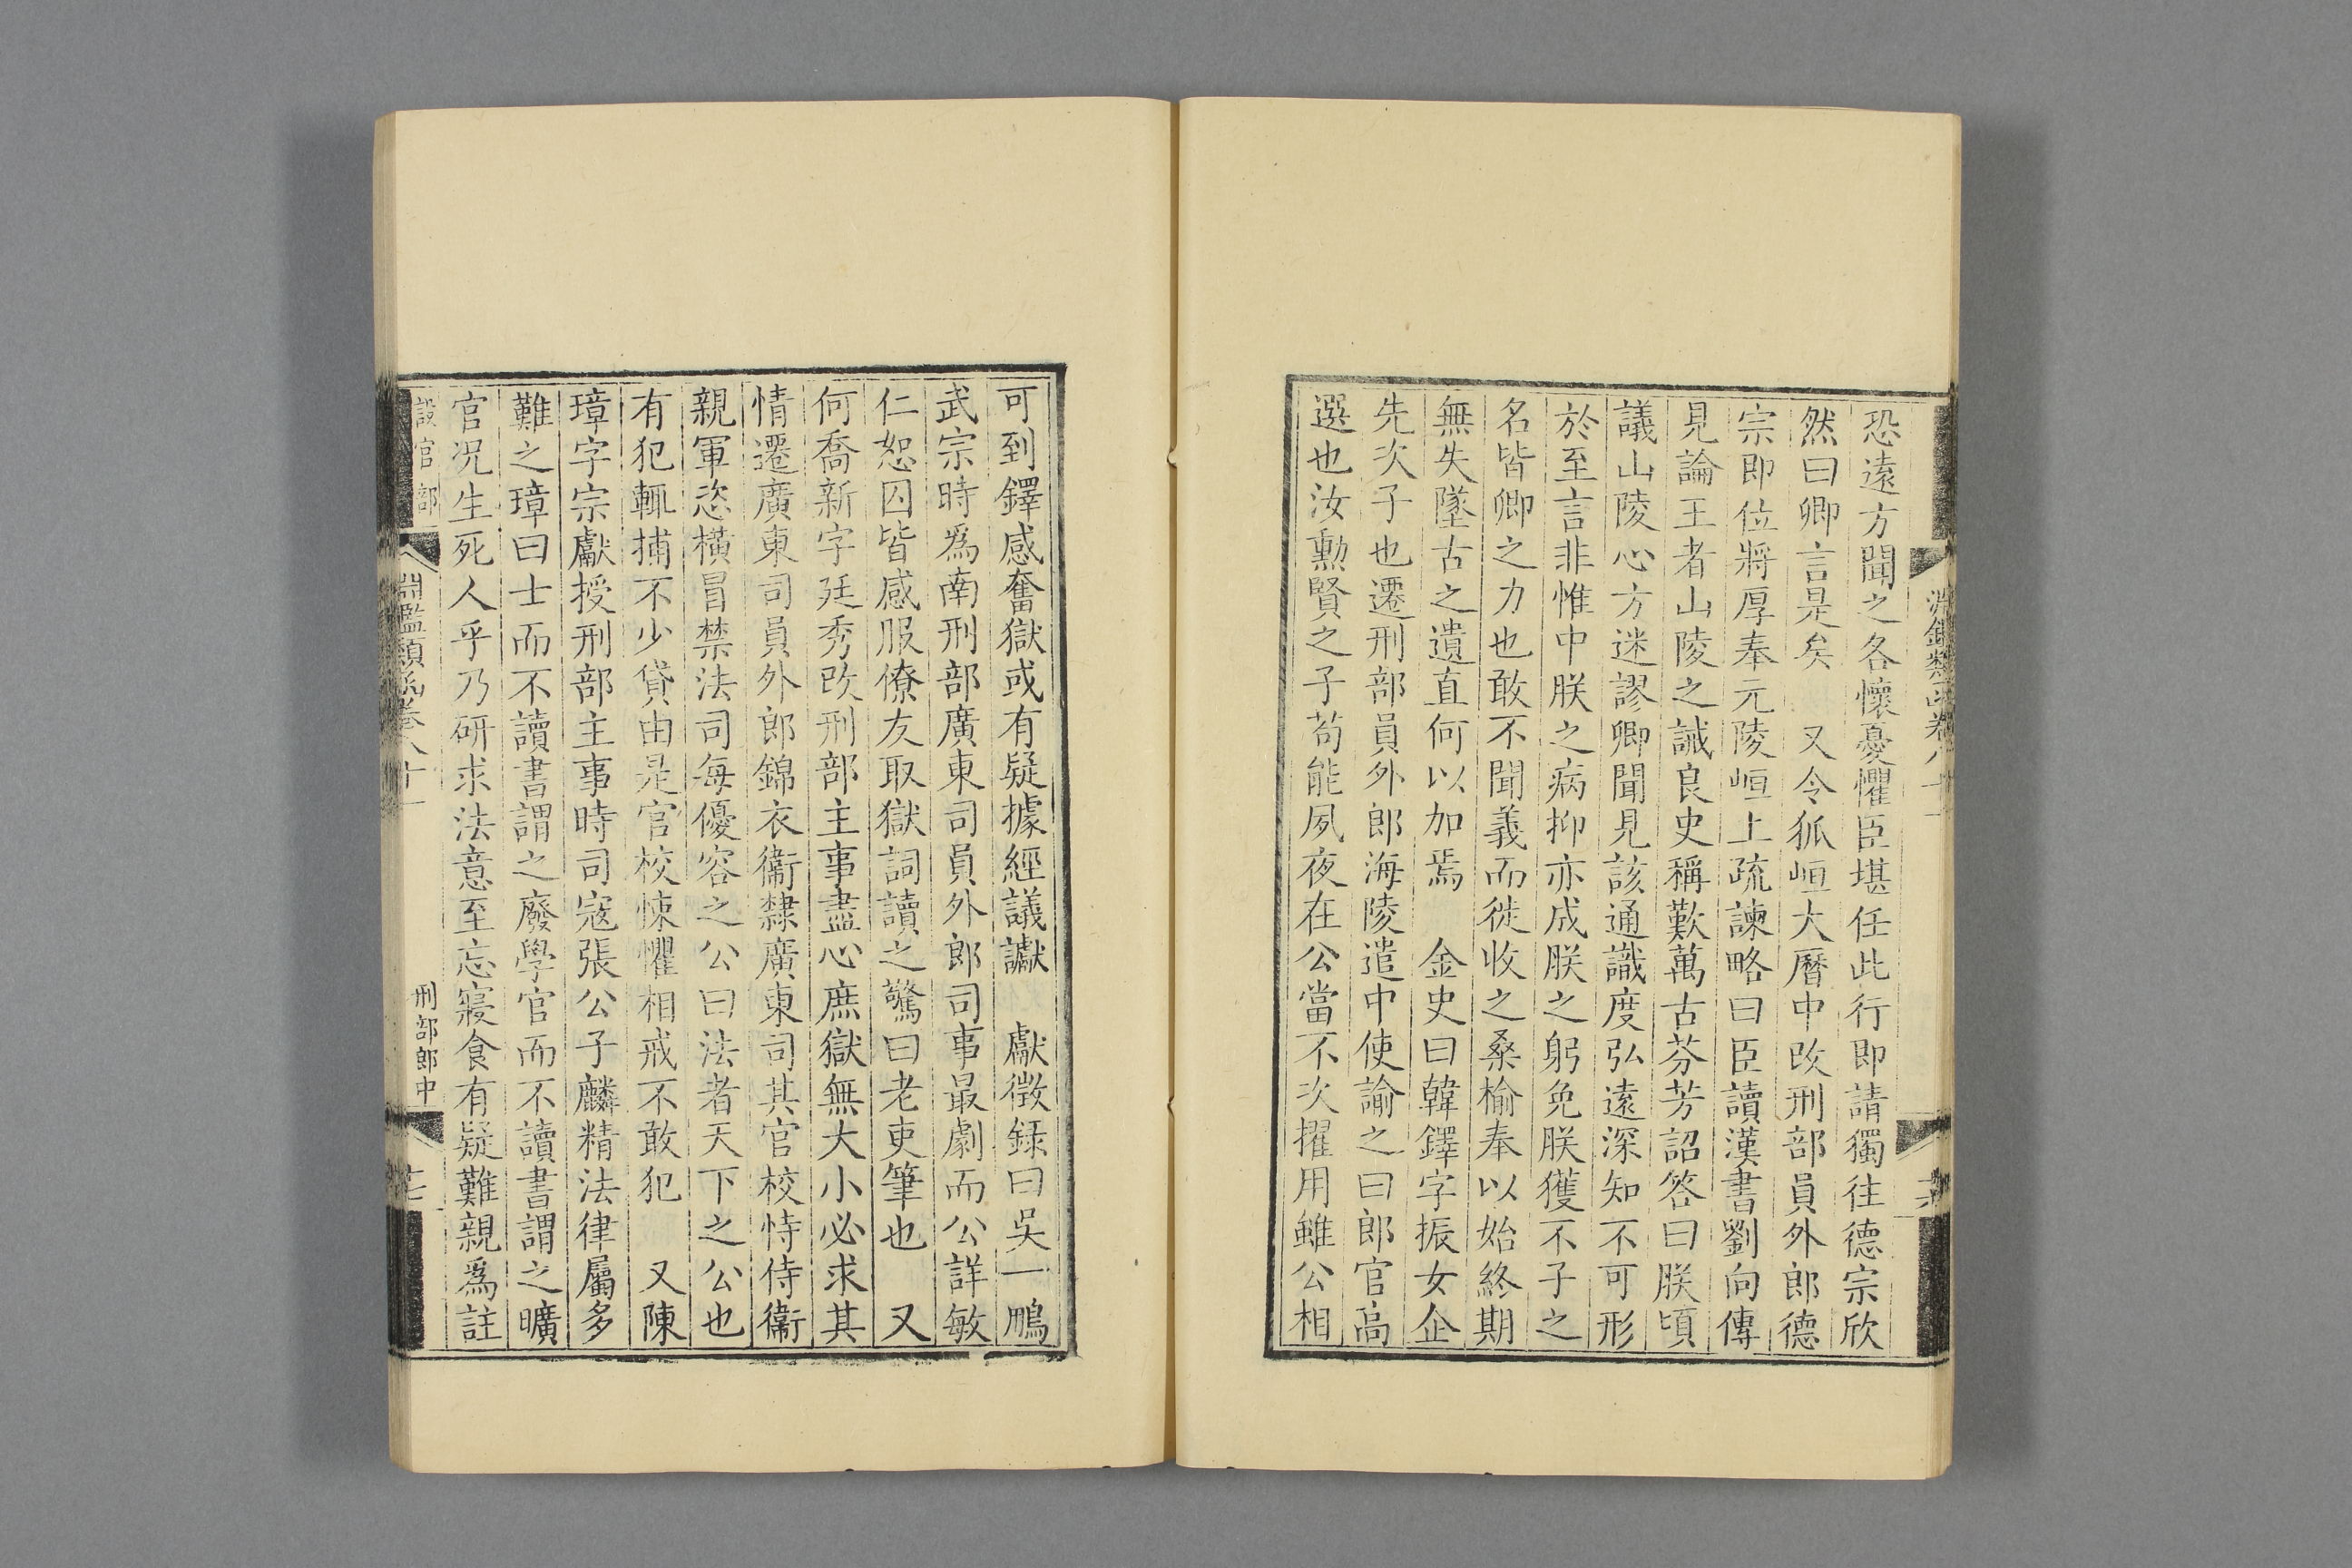 恐遠方聞之各懷憂懼臣堪任此行即請獨往德宗欣
然曰卿言是矣　又令狐峘大曆中改刑部員外郎德
宗即位將厚奉元陵峘上疏諫略曰臣讀漢書劉向傳
見論王者山陵之誡良史稱歎萬古芬芳詔答曰朕頃
議山陵心方迷謬卿聞見該通識度弘遠深知不可形
於至言非惟中朕之病抑亦成朕之躬免朕獲不子之
名皆卿之力也敢不聞義而徙收之桑榆奉以始終期
無失墜古之遺直何以加焉　金史曰韓鐸字振女企
先次子也遷刑部員外郎海陵遣中使諭之曰郎官高
選也汝勲賢之子苟能夙夜在公當不次擢用雖公相
可到鐸感奮獄或有疑據經議讞　獻徵録曰吳一鵬
武宗時爲南刑部廣東司員外郎司事最劇而公詳敏
仁恕囚皆感服僚友取獄詞讀之驚曰老吏筆也　又
何喬新字廷秀改刑部主事盡心庶獄無大小必求其
情遷廣東司員外郎錦衣衞隸廣東司其官校恃侍衞
親軍恣橫冒禁法司每優容之公曰法者天下之公也
有犯輒捕不少貸由是官校悚懼相戒不敢犯　又陳
璋字宗獻授刑部主事時司寇張公子麟精法律屬多
難之璋曰士而不讀書謂之廢學官而不讀書謂之曠
官況生死人乎乃研求法意至忘寢食有疑難親爲註
設官部
淵鑑類函卷八十一
刑部郎中